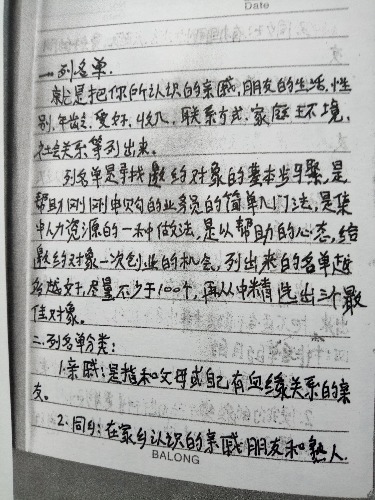 Date
一.列名单.
就是把你所认识的亲戚,朋友的生活,性
别,年龄,爱好,收入,联系方式,家庭环境,
社会关系等列出来。
列名单是寻找邀约对象的基本步骤,是
帮助刚刚申购的业务员的简单入门法,是集
中人力资源的一种做法,是以帮助的心态,给
邀约对象一次创业的机会,列出来的名单越
多越好,尽量不少于100个,再从中精选出三个最
佳对象。
二.列名单分类:
1.亲戚:是指和父母或自己有血缘关系的亲
友。
2.同乡:在家乡认识的亲戚朋友和熟人.
BALONG